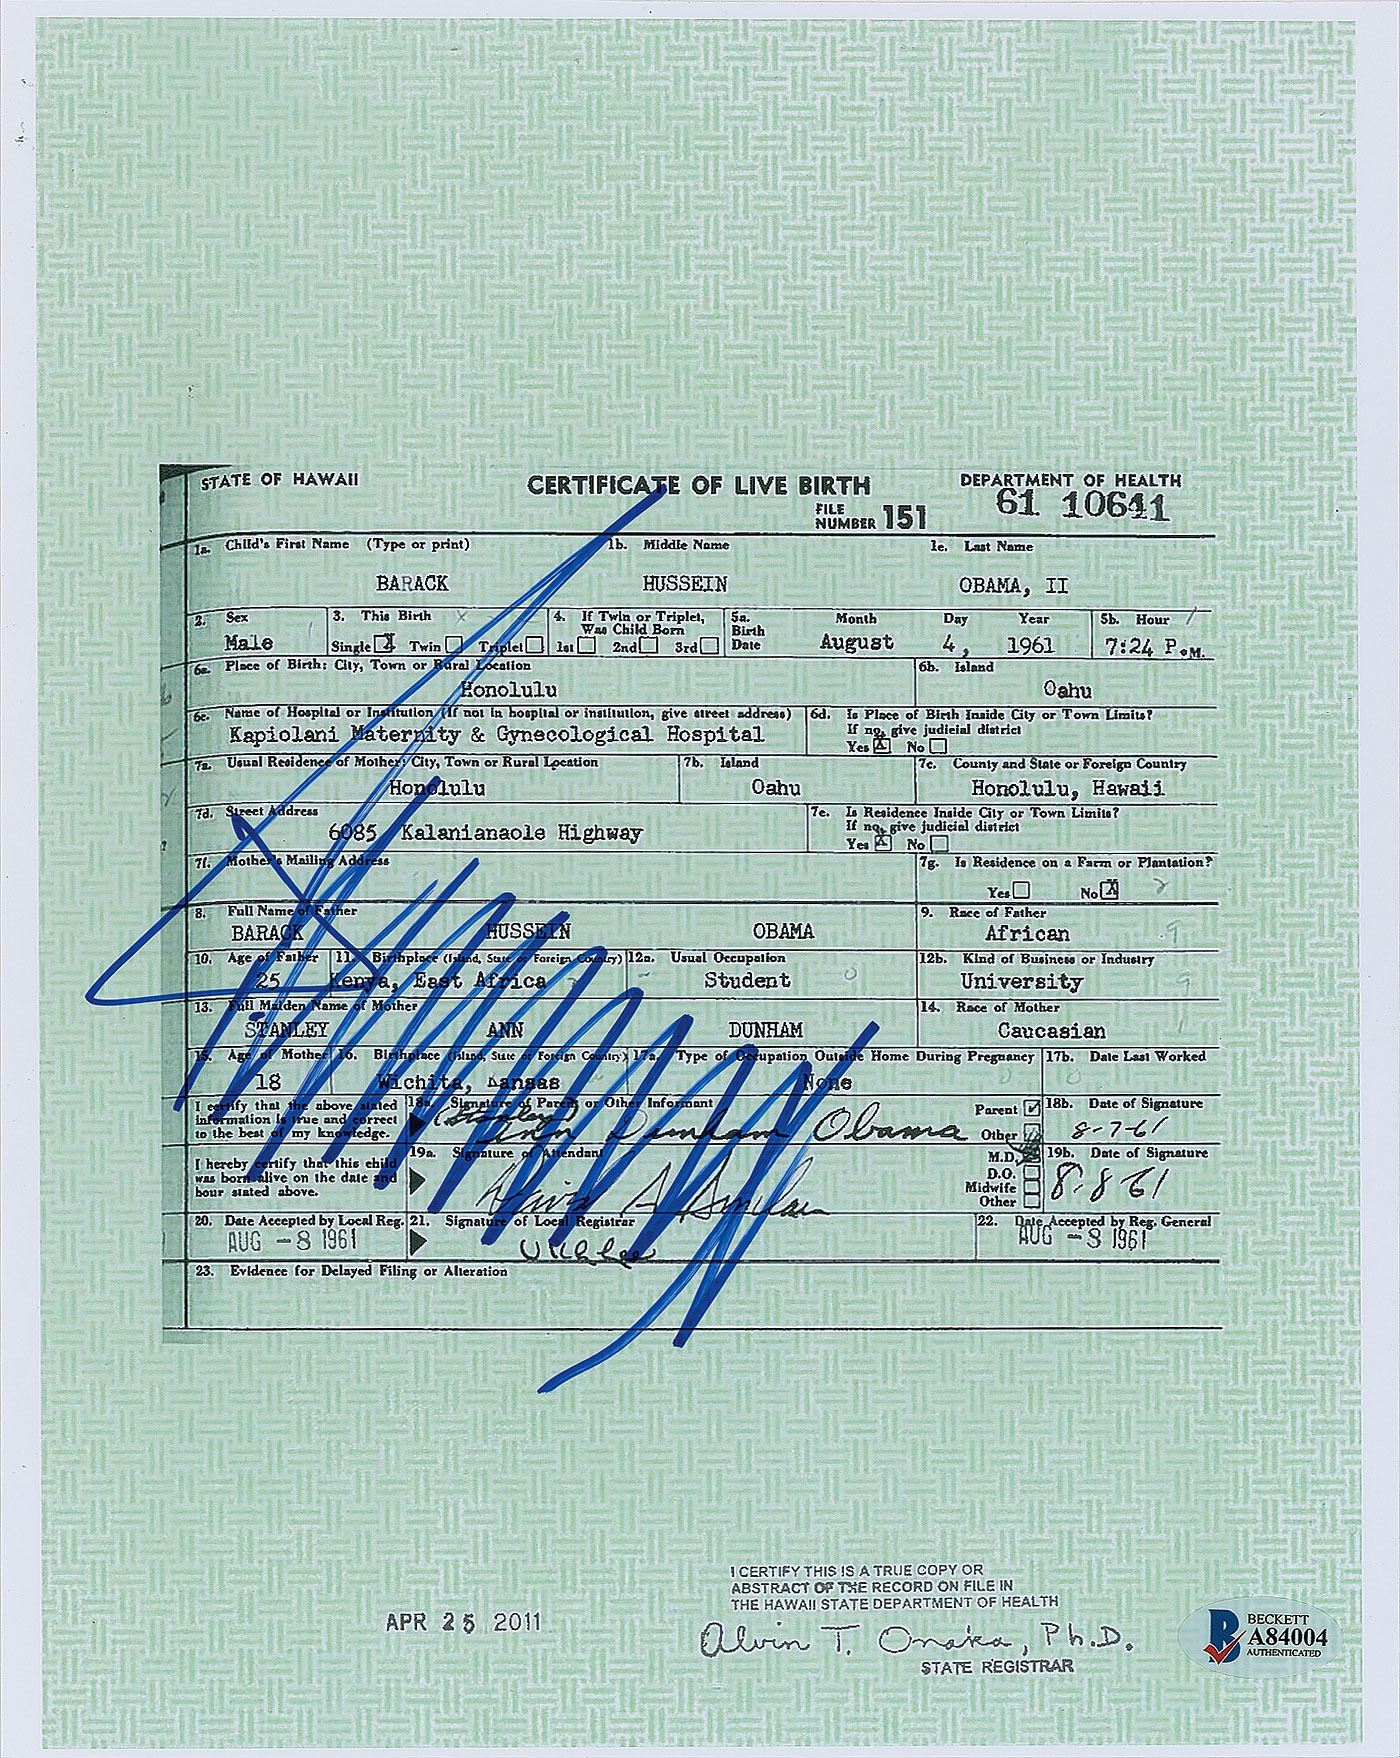 STATE OF HAWAII CERTIFICATE OF LIVE BIRTH DEPARTMENT OF HEALTH
FILE NUMBER 151 61 10641
1a. Child's First Name (Type or print) 1b. Middle Name 1c. Last Name
BARACK HUSSEIN OBAMA, II
2. Sex 3. This Birth 4. If Twin or Triplet, Was Child Born 5a. Birth Date Month Day Year 5b. Hour
Male Single X Twin Triplet 1st 2nd 3rd August 4, 1961 7:24 P.M.
6a. Place of Birth: City, Town or Rural Location 6b. Island
Honolulu Oahu
6c. Name of Hospital or Institution (If not in hospital or institution, give street address) 6d. Is Place of Birth Inside City or Town Limits?
If no, give judicial district
Kapiolani Maternity & Gynecological Hospital Yes X No
7a. Usual Residence of Mother: City, Town or Rural Location 7b. Island 7c. County and State or Foreign Country
Honolulu Oahu Honolulu, Hawaii
7d. Street Address 7e. Is Residence Inside City or Town Limits?
If no, give judicial district
6085 Kalanianaole Highway Yes X No
7f. Mother's Mailing Address 7g. Is Residence on a Farm or Plantation?
Yes No X
8. Full Name of Father 9. Race of Father
BARACK HUSSEIN OBAMA African
10. Age of Father 11. Birthplace (Island, State or Foreign Country) 12a. Usual Occupation 12b. Kind of Business or Industry
25 Kenya, East Africa Student University
13. Full Maiden Name of Mother 14. Race of Mother
STANLEY ANN DUNHAM Caucasian
15. Age of Mother 16. Birthplace (Island, State or Foreign Country) 17a. Type of Occupation Outside Home During Pregnancy 17b. Date Last Worked
18 Wichita, Kansas None
I certify that the above stated information is true and correct to the best of my knowledge. 18a. Signature of Parent or Other Informant Parent Other 18b. Date of Signature
(Stanley) Ann Dunham Obama 8-7-61
I hereby certify that this child was born alive on the date and hour stated above. 19a. Signature of Attendant M.D. D.O. Midwife Other 19b. Date of Signature
David A Sinclair 8-8-61
20. Date Accepted by Local Reg. 21. Signature of Local Registrar 22. Date Accepted by Reg. General
AUG -8 1961 AUG -8 1961
23. Evidence for Delayed Filing or Alteration
APR 25 2011
I CERTIFY THIS IS A TRUE COPY OR
ABSTRACT OF THE RECORD ON FILE IN
THE HAWAII STATE DEPARTMENT OF HEALTH
Alvin T. Onaka, Ph.D.
STATE REGISTRAR
BECKETT
A84004
AUTHENTICATED